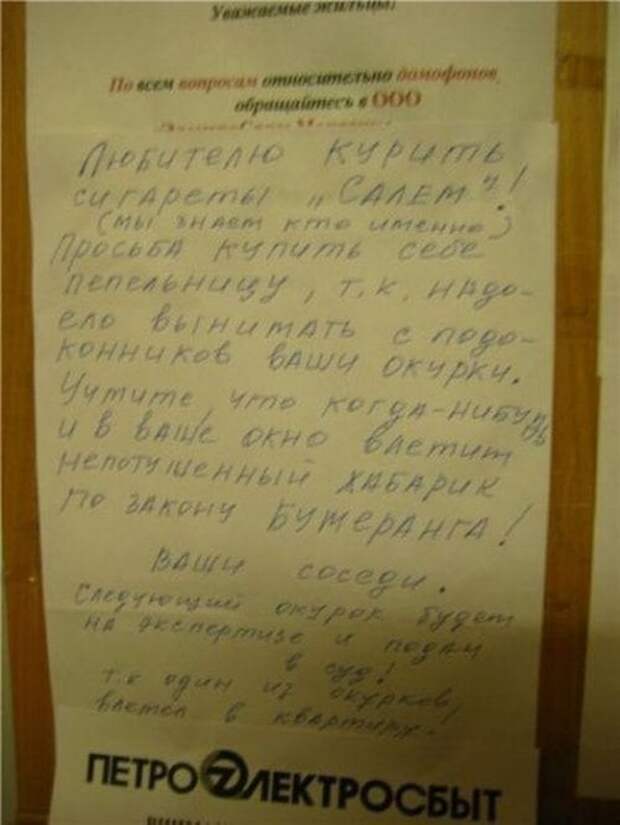 Уважаемые жильцы!
По всем вопросам относительно домофонов,
обращайтесь в ООО
Любителю курить
сигареты „Салем"!
(мы знаем кто именно)
Просьба купить себе
пепельницу, т.к. надо-
ело вынимать с подо-
конников ваши окурки.
Учтите, что когда-нибудь
и в ваше окно влетит
непотушенный хабарик
по закону бумеранга!
Ваши соседи.
Следующий окурок будет
на экспертизе и подам
в суд!
т.к один из окурков,
влетел в квартиру.
ПЕТРОЭЛЕКТРОСБЫТ